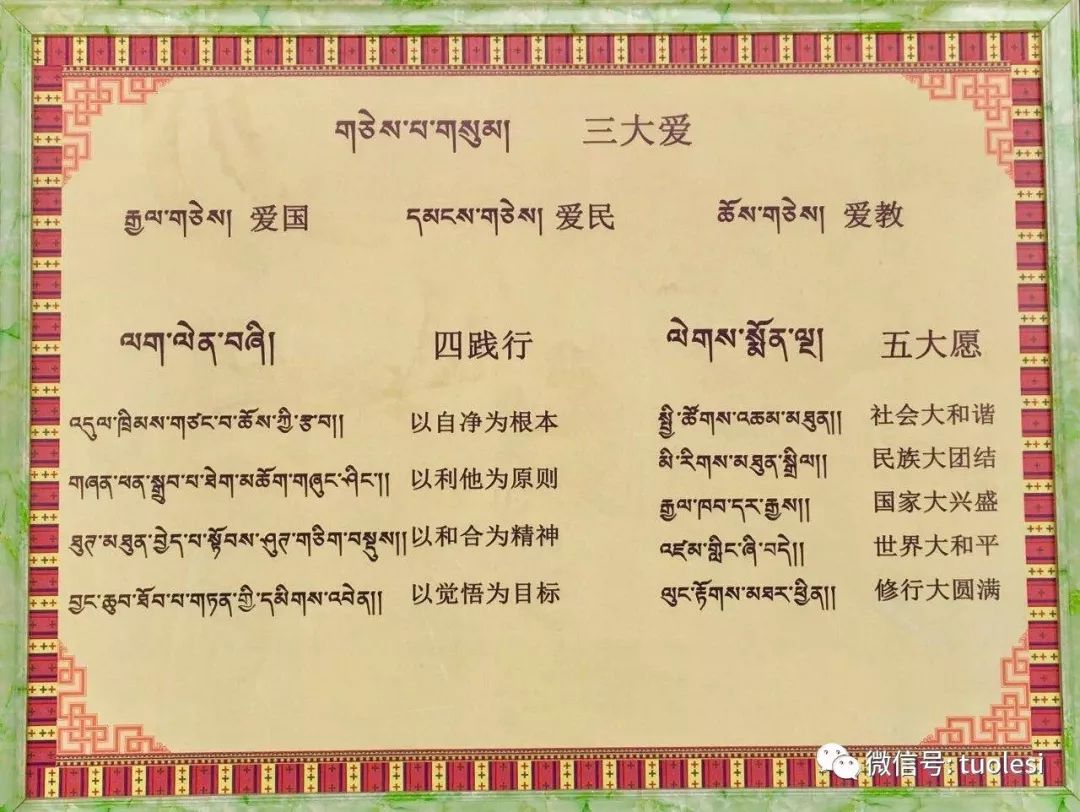 གཅེས་པ་གསུམ། 三大爱
རྒྱལ་གཅེས། 爱国 དམངས་གཅེས། 爱民 ཆོས་གཅེས། 爱教
ལག་ལེན་བཞི། 四践行 ལེགས་སྨོན་ལྔ། 五大愿
འདུལ་ཁྲིམས་གཙང་བ་ཆོས་ཀྱི་རྩ་བ།། 以自净为根本
གཞན་ཕན་སྒྲུབ་པ་ཐེག་མཆོག་གཞུང་ཤིང་།། 以利他为原则
ཐུཊ་མཐུན་བྱེད་པ་སྟོབས་ཤུཊ་གཅིག་བསྡུས།། 以和合为精神
བྱང་ཆུབ་ཐོབ་པ་གཏན་གྱི་དམིགས་འབེན།། 以觉悟为目标
སྤྱི་ཚོགས་འཆམ་མཐུན།། 社会大和谐
མི་རིགས་མཐུན་སྒྲིལ།། 民族大团结
རྒྱལ་ཁབ་དར་རྒྱས།། 国家大兴盛
འཛམ་གླིང་ཞི་བདེ།། 世界大和平
ལུང་རྟོགས་མཐར་ཕྱིན།། 修行大圆满
微信号: tuolesi